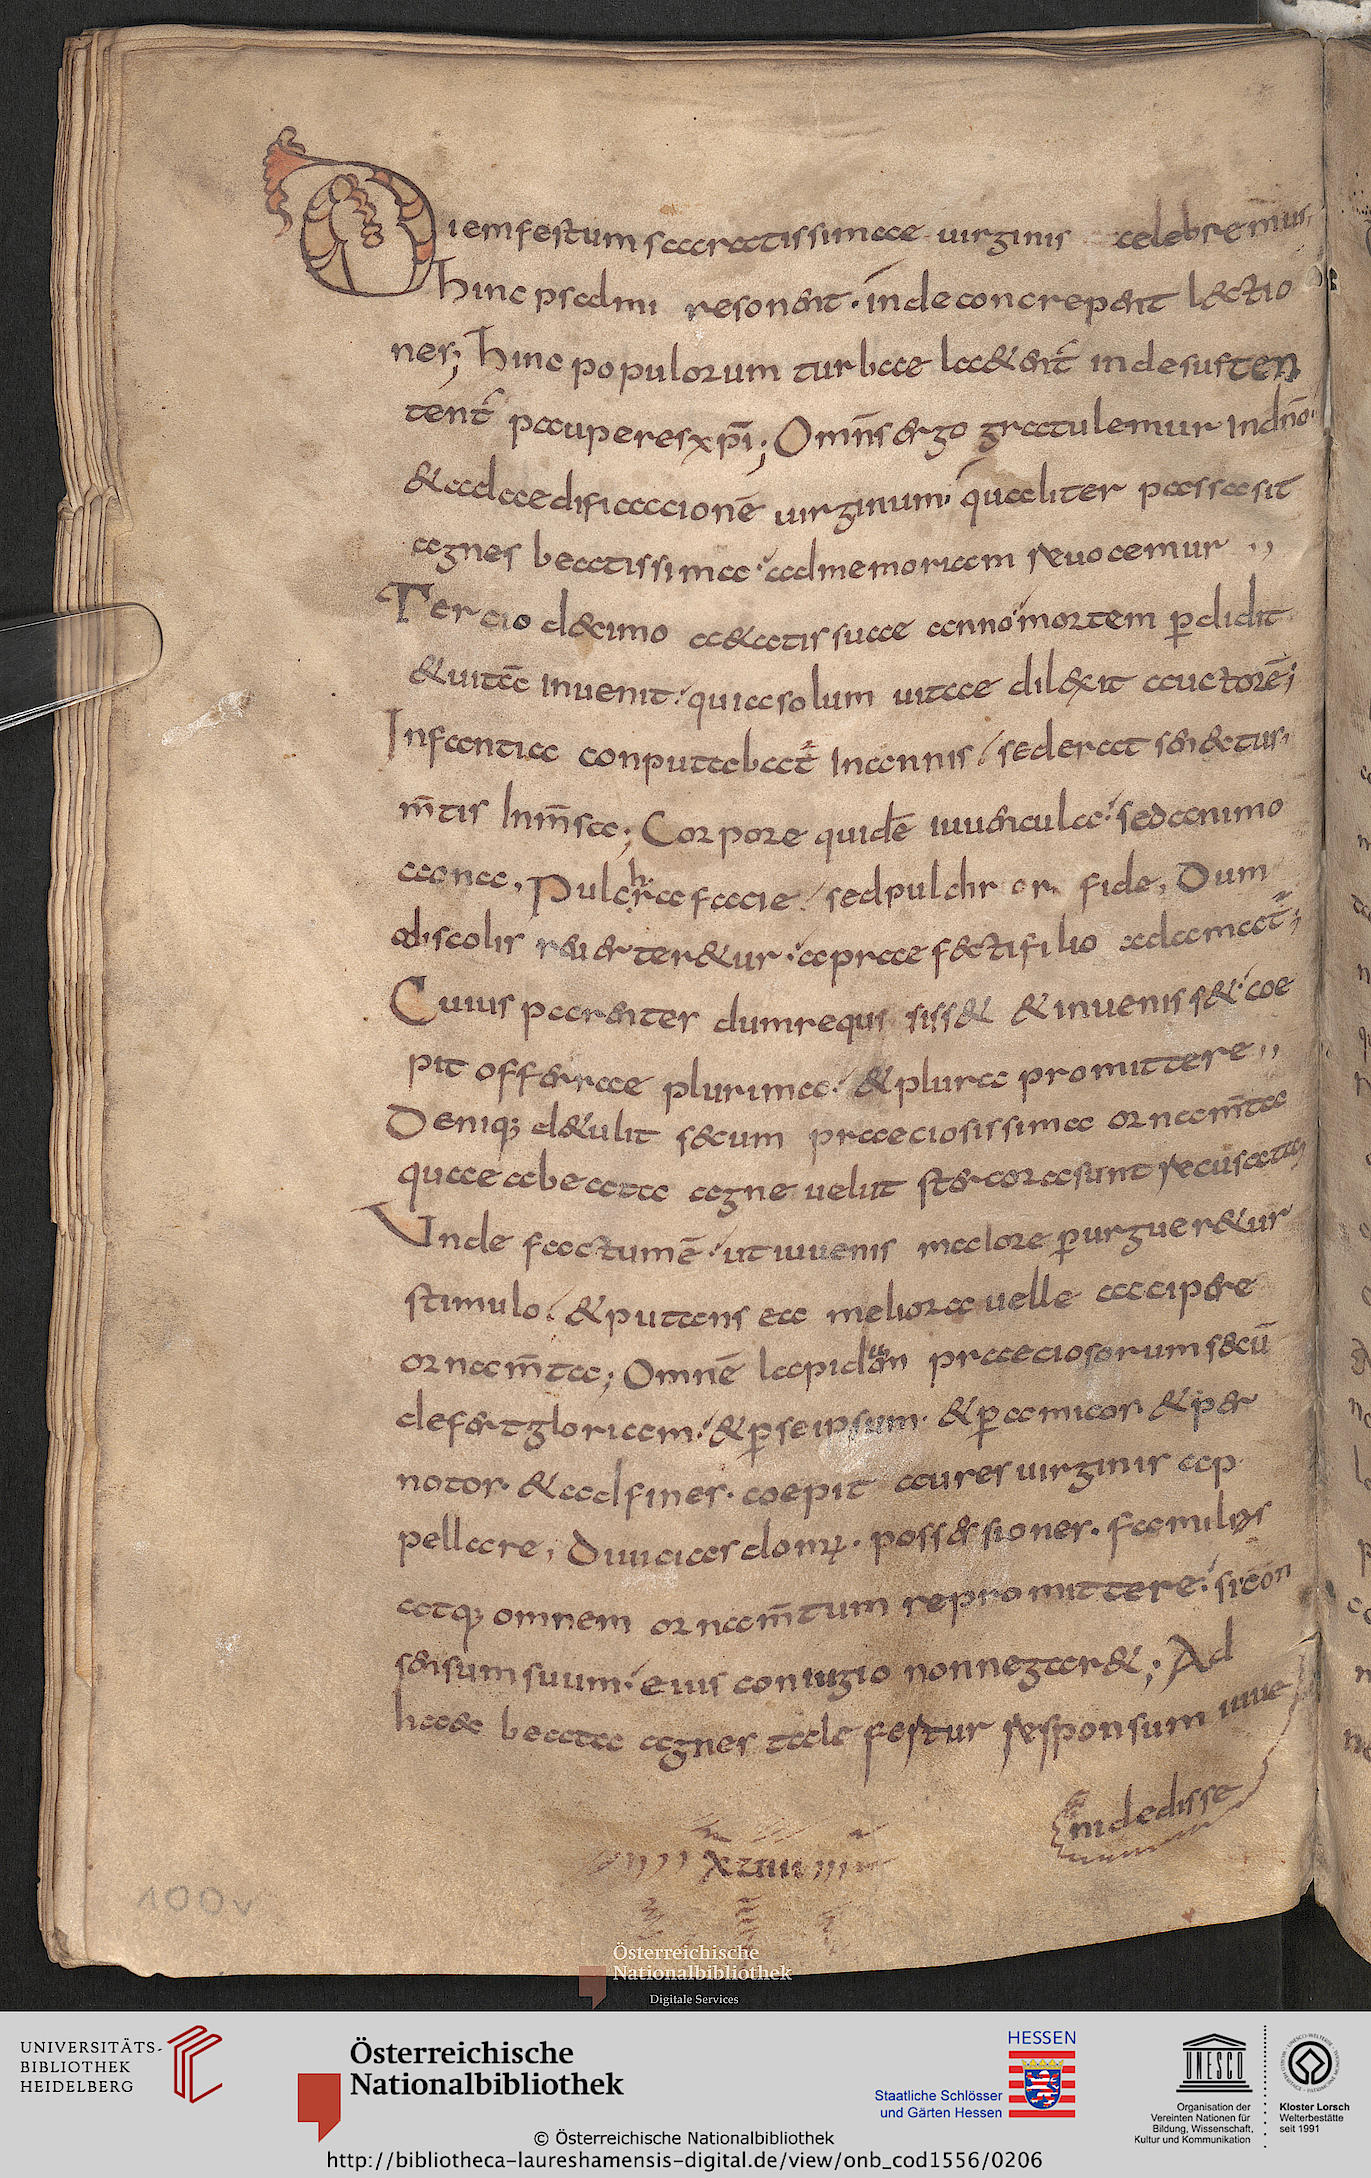 Diem festum sacratissimae uirginis celebremus,
hinc psalmi resonent. inde concrepent lectio
nes; hinc populorum turbae laetent̄ inde susten
tent̄ pauperes xp̄i; Omn̄s ergo gratulemur in dn̄o.
& ad aedificacionē uirginum. qualiter passa sit
agnes beatissima. ad memoriam reuocemur,,
Tercio decimo aetatis suae anno mortem p̱didit
& uitā inuenit. quia solum uitae dilexit auctorē;
Infantia conputabat̄ in annis, sed erat senectus
m̄tis inm̄sa; Corpore quidē iuuencula. sed animo
cana, Pulchra facie, sed pulchrior fide, Dum
a discolis reuerteretur. a praefecti filio adamat̄;
Cuius parenter dum requisisset & inuenisset. coe
pit offerrae plurima. & plura promittere,,
Deniq; detulit secum praeciosissima ornam̄ta
quae a beata agne uelut stercora sunt recusata,
Unde factum ē. ut iuuenis maiore p̱urgueretur
stimulo. & putans ea meliora uelle accipere
ornam̄ta; Omnē lapidum praeciosorum secū
defert gloriam. & p̱ se ipsum. & p̱ amicos & per
notos. & adfines. coepit aures uirginis ap
pellare, Diuicias domꝝ. possessiones. familias
atq; omnem ornam̄tum repromittere. si con
sensum suum. eius coniugio non negaret; Ad
haec beata agnes tale festur responsum iuue
ni dedisse
100v
Österreichische
Nationalbibliothek
Digitale Services
UNIVERSITÄTS-
BIBLIOTHEK
HEIDELBERG
Österreichische
Nationalbibliothek
HESSEN
Staatliche Schlösser
und Gärten Hessen
UNESCO
Organisation der
Vereinten Nationen für
Bildung, Wissenschaft,
Kultur und Kommunikation
Kloster Lorsch
Welterbestätte
seit 1991
© Österreichische Nationalbibliothek
http://bibliotheca-laureshamensis-digital.de/view/onb_cod1556/0206